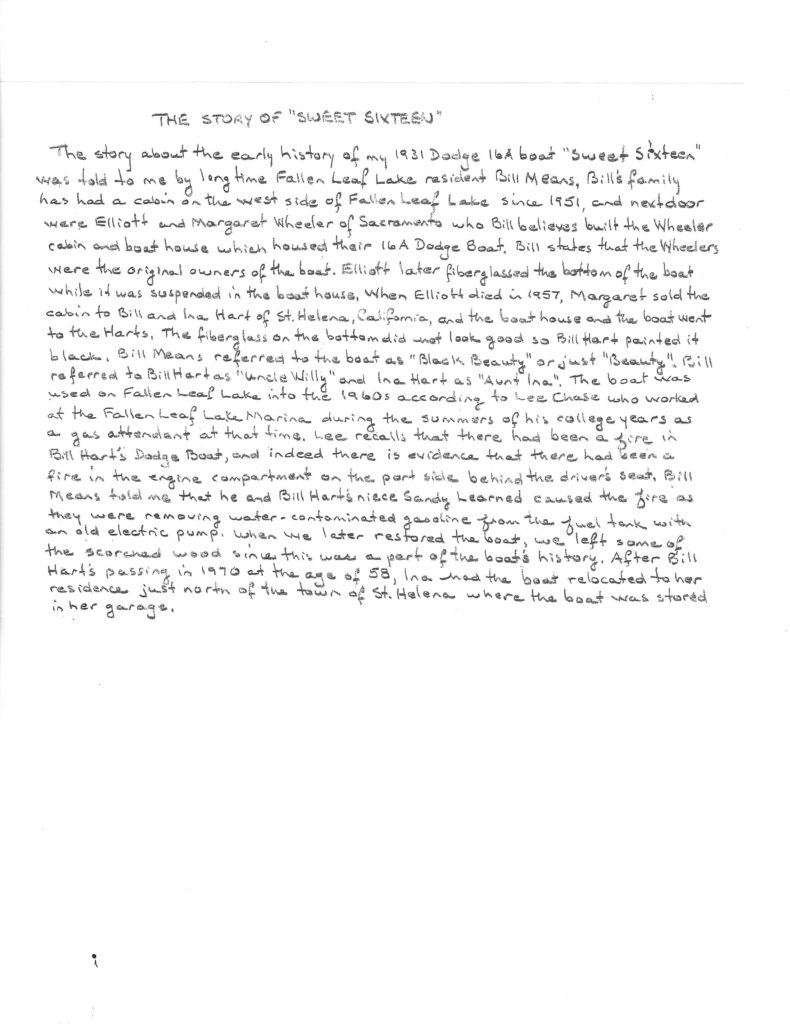 THE STORY OF "SWEET SIXTEEN"
The story about the early history of my 1931 Dodge 16A boat "Sweet Sixteen"
was told to me by long time Fallen Leaf Lake resident Bill Means. Bill's family
has had a cabin on the west side of Fallen Leaf Lake since 1951, and nextdoor
were Elliott and Margaret Wheeler of Sacramento who Bill believes built the Wheeler
cabin and boat house which housed their 16A Dodge Boat. Bill states that the Wheelers
were the original owners of the boat. Elliott later fiberglassed the bottom of the boat
while it was suspended in the boat house. When Elliott died in 1957, Margaret sold the
cabin to Bill and Ina Hart of St. Helena, California, and the boat house and the boat went
to the Harts. The fiberglass on the bottom did not look good so Bill Hart painted it
black. Bill Means referred to the boat as "Black Beauty" or just "Beauty". Bill
referred to Bill Hart as "Uncle Willy" and Ina Hart as "Aunt Ina". The boat was
used on Fallen Leaf Lake into the 1960s according to Lee Chase who worked
at the Fallen Leaf Lake Marina during the summers of his college years as
a gas attendant at that time. Lee recalls that there had been a fire in
Bill Hart's Dodge Boat, and indeed there is evidence that there had been a
fire in the engine compartment on the port side behind the driver's seat. Bill
Means told me that he and Bill Hart's niece Sandy Learned caused the fire as
they were removing water-contaminated gasoline from the fuel tank with
an old electric pump. When we later restored the boat, we left some of
the scorched wood since this was a part of the boat's history. After Bill
Hart's passing in 1970 at the age of 58, Ina had the boat relocated to her
residence just north of the town of St. Helena where the boat was stored
in her garage.
i